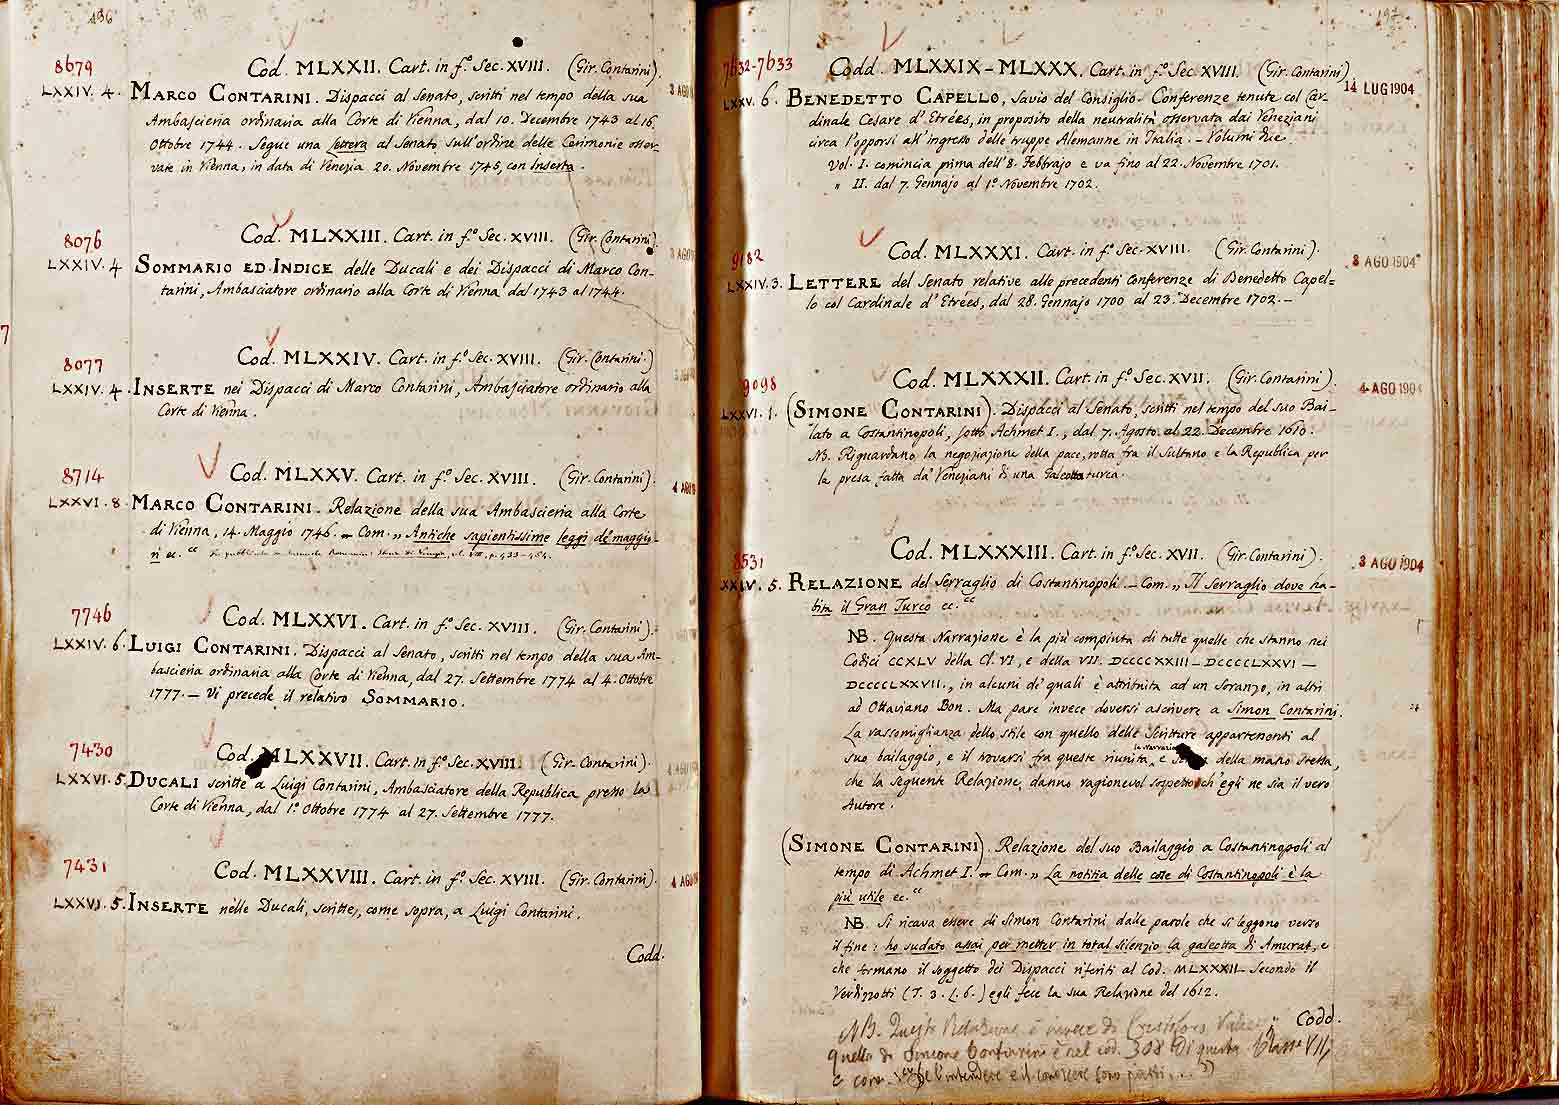 496
8679
Cod. MLXXII. Cart. in f.º Sec. XVIII. (Gir. Contarini).
LXXIV. 4. MARCO CONTARINI. Dispacci al Senato, scritti nel tempo della sua
Ambascieria ordinaria alla Corte di Vienna, dal 10. Decembre 1743 al 16.
Ottobre 1744. Segue una lettera al Senato sull'ordine delle Cerimonie osser-
vate in Vienna, in data di Venezia 20. Novembre 1745, con Inserta.
8076
Cod. MLXXIII. Cart. in f.º Sec. XVIII. (Gir. Contarini).
LXXIV. 4 SOMMARIO ED INDICE delle Ducali e dei Dispacci di Marco Con-
tarini, Ambasciatore ordinario alla Corte di Vienna dal 1743 al 1744.
8077
Cod. MLXXIV. Cart. in f.º Sec. XVIII. (Gir. Contarini.)
LXXIV. 4. INSERTE nei Dispacci di Marco Contarini, Ambasciatore ordinario alla
Corte di Vienna.
8714
Cod. MLXXV. Cart. in f.º Sec. XVIII. (Gir. Contarini).
LXXVI. 8 MARCO CONTARINI. Relazione della sua Ambascieria alla Corte
di Vienna, 14. Maggio 1746. Com. „ Antiche sapientissime leggi de' maggio-
ri ec.
7746
Cod. MLXXVI. Cart. in f.º Sec. XVIII. (Gir. Contarini).
LXXIV. 6. LUIGI CONTARINI. Dispacci al Senato, scritti nel tempo della sua Am-
bascieria ordinaria alla Corte di Vienna, dal 27. Settembre 1774 al 4. Ottobre
1777. — Vi precede il relativo SOMMARIO.
7430
Cod. MLXXVII. Cart. in f.º Sec. XVIII. (Gir. Contarini).
LXXVI. 5. DUCALI scritte a Luigi Contarini, Ambasciatore della Repubblica presso la
Corte di Vienna, dal 1.º Ottobre 1774 al 27. Settembre 1777.
7431
Cod. MLXXVIII. Cart. in f.º Sec. XVIII. (Gir. Contarini).
LXXVI. 5. INSERTE nelle Ducali, scritte, come sopra, a Luigi Contarini.
4 AGO
Codd.
497
7632-7633
Codd. MLXXIX – MLXXX. Cart. in f.º Sec. XVIII. (Gir. Contarini)
14 LUG 1904
LXXV. 6. BENEDETTO CAPELLO, Savio del Consiglio. Conferenze tenute col Car-
dinale Cesare d'Etrées, in proposito della neutralità osservata dai Veneziani
circa l'opporsi all'ingresso delle truppe Alemanne in Italia. – Volumi due
Vol. I. comincia prima dell'8. Febbrajo e va fino al 22. Novembre 1701.
„ II. dal 7. Gennajo al 1.º Novembre 1702.
9182
Cod. MLXXXI. Cart. in f.º Sec. XVIII. (Gir. Contarini).
3 AGO 1904
LXXIV. 3. LETTERE del Senato relative alle precedenti Conferenze di Benedetto Capel-
lo col Cardinale d'Etrées, dal 28. Gennajo 1700 al 23. Decembre 1702. —
9098
Cod. MLXXXII. Cart. in f.º Sec. XVII. (Gir. Contarini).
4 AGO 1904
LXXVI. 1. (SIMONE CONTARINI). Dispacci al Senato, scritti nel tempo del suo Bai-
lato a Costantinopoli, sotto Achmet I., dal 7. Agosto al 22. Decembre 1610.
NB. Riguardano la negoziazione della pace, rotta fra il Sultano e la Republica per
la presa fatta da' Veneziani di una Galeotta turca.
8531
Cod. MLXXXIII. Cart. in f.º Sec. XVII. (Gir. Contarini).
3 AGO 1904
XXIV. 5. RELAZIONE del Serraglio di Costantinopoli. — Com. „ Il Serraglio dove ha-
bita il Gran Turco ec.
NB. Questa Narrazione è la più compiuta di tutte quelle che stanno nei
Codici CCXLV della Cl. VI, e della VII. DCCCCXXIII – DCCCCLXXVI —
DCCCCLXXVII., in alcuni de' quali è attribuita ad un Soranzo, in altri
ad Ottaviano Bon. Ma pare invece doversi ascrivere a Simon Contarini.
La rassomiglianza dello stile con quello delle Scritture appartenenti al
suo bailaggio, e il trovarsi fra queste riunita, e della mano stessa,
che la seguente Relazione, danno ragionevol sospetto ch'egli ne sia il vero
Autore.
(SIMONE CONTARINI). Relazione del suo Bailaggio a Costantinopoli al
tempo di Achmet I. Com. „ La notitia delle cose di Costantinopoli è la
più utile ec.
NB. Si ricava essere di Simon Contarini dalle parole che si leggono verso
il fine: ho sudato assai per metter in total silenzio la galeotta di Amurat, e
che formano il soggetto dei Dispacci riferiti al Cod. MLXXXII. Secondo il
Verdizzotti (T. 3. L. 6.) egli fece la sua Relazione del 1612.
Codd.
NB. Questa Relazione è invece di Cristoforo Valier
quella di Simone Contarini è nel cod. 308 di questa Classe VII,
e com. l'intendere e il conoscere